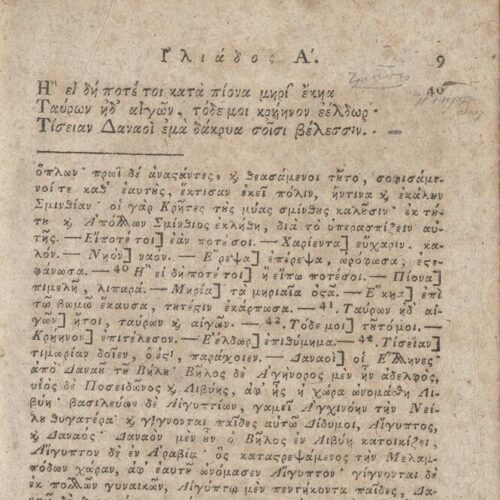 Ἰλιάδος Α΄. 9
Ἢ εἰ δή ποτέ τοι κατὰ πίονα μηρί᾽ ἔκηα 40
Ταύρων ἠδ᾽ αἰγῶν, τόδε μοι κρήηνον ἐέλδωρ·
Τίσειαν Δαναοὶ ἐμὰ δάκρυα σοῖσι βέλεσσιν.
ὅπλων· πρωῒ δὲ ἀναςάντες, ϗ θεασάμενοι τοῦτο, σοφισάμε-
νοί τε καθ᾽ ἑαυτὸς, ἔκτισαν ἐκεῖ πόλιν, ἥντινα ϗ ἐκάλουν
Σμινθίαν· οἱ γὰρ Κρῆτες τὸς μύας σμίνθους καλοῦσιν· ἐκ τύ-
τυ ϗ Ἀπόλλων Σμίνθιος ἐκλήθη, διὰ τὸ ὑπερασπίζειν αὐ-
τῆς. — Εἴποτέ τοι] ἐάν ποτέ σοι. — Χαρίεντα] εὔχαριν. κα-
λόν. — Νηὸν] ναόν. — Ἔρεψα] ἐπέρεψα, ὠρόφωσα, ἐςε-
φάνωσα. — 40 Ἢ εἰ δή ποτέ τοι] ἢ εἴπω ποτέ σοι. — Πίονα]
πιμελῆ, λιπαρά. — Μηρία] τὰ μηριαῖα ὀςᾶ. — Ἔκηα] ἐπὶ
τῷ βωμῷ ἔκαυσα, τουτέςιν ἐκάρπωσα. — 41. Ταύρων ἠδ᾽ αἰ-
γῶν] ἤτοι, ταύρων ϗ αἰγῶν. — 42. Τόδε μοι] τοῦτό μοι. —
Κρήηνον] ἐπιτέλεσον. — Ἐέλδωρ] ἐπιθύμημα. — 42. Τίσειαν]
τιμωρίαν δοῖεν, ὅ ἐςι, παράχοιεν. — Δαναοὶ] οἱ Ἕλληνες·
ἀπὸ Δαναοῦ τοῦ Βήλου· Βῆλος δὲ Ἀγήνορος μὲν ἦν ἀδελφὸς,
υἱὸς δὲ Ποσειδῶνος ϗ Λιβύης, ἀφ᾽ ἧς ἡ χώρα ὠνομάσθη Λι-
βύη· βασιλεύων δὲ Αἰγυπτίων, γαμεῖ Ἀγχινόην τὴν Νεί-
λου θυγατέρα· ϗ γίγνονται παῖδες αὐτῷ δίδυμοι, Αἴγυπτος,
ϗ Δαναός· Δαναὸν μὲν οὖν ὁ Βῆλος ἐν Λιβύῃ κατοικίζει,
Αἴγυπτον δὲ ἐν Ἀραβίᾳ· ὃς καταςρεψάμενος τὴν Μελαμ-
πόδων χώραν, ἀφ᾽ ἑαυτοῦ ὠνόμασεν Αἴγυπτον· γίγνονται δὲ
ἐκ πολλῶν γυναικῶν, Αἰγύπτῳ μὲν πεντήκοντα παῖδες, Δα-